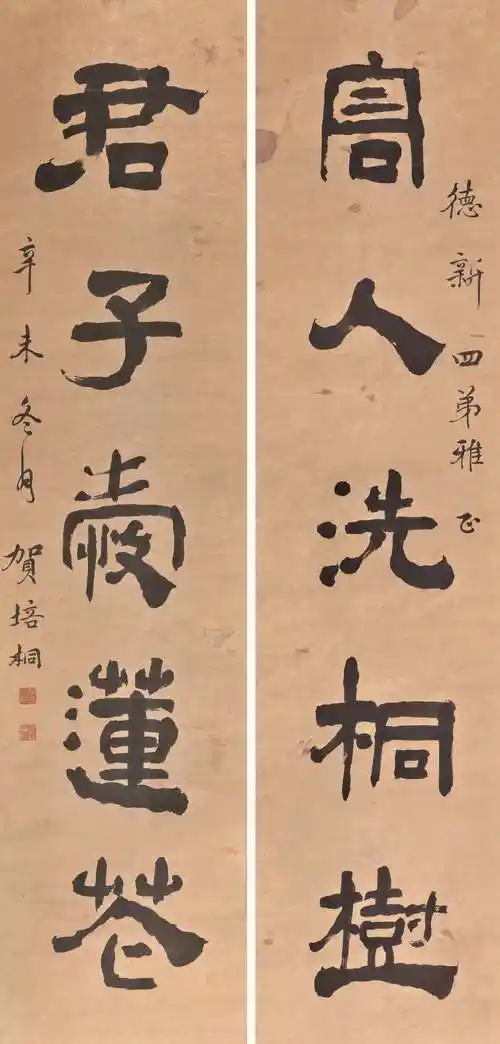 德新四弟雅正
高人洗桐樹
君子愛蓮花
辛未冬月賀培桐